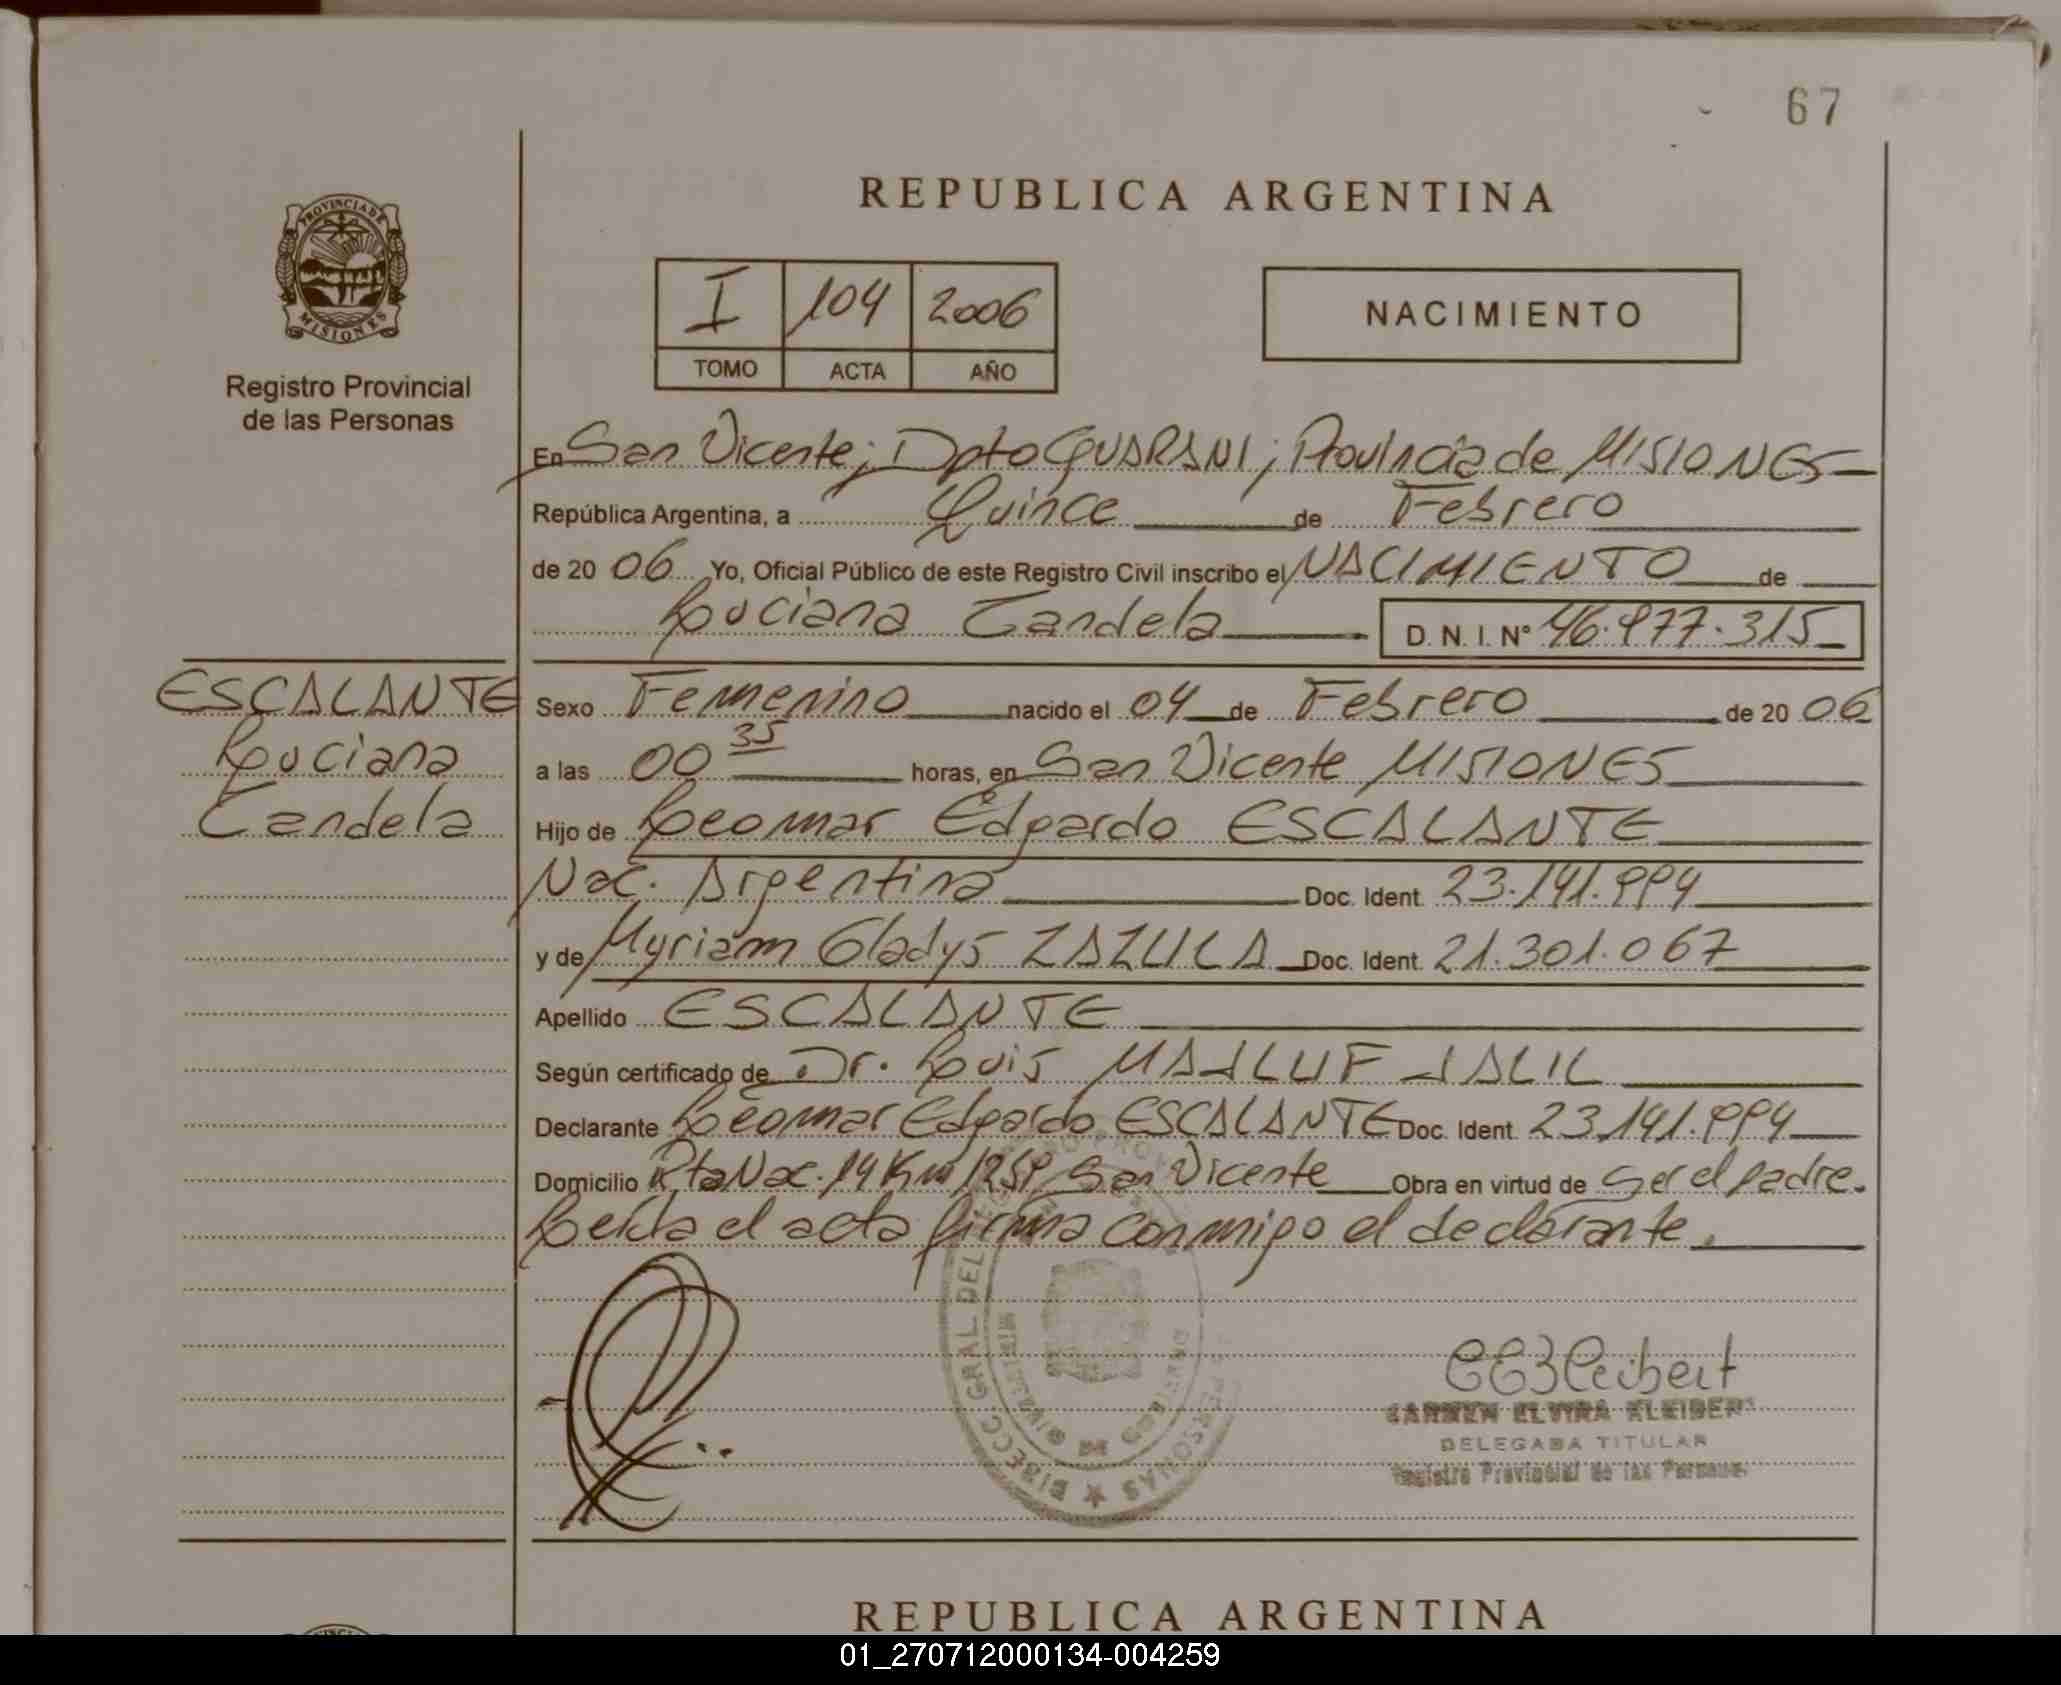 67
REPUBLICA ARGENTINA
PROVINCIA DE
MISIONES
Registro Provincial
de las Personas
I 104 2006
TOMO ACTA AÑO
NACIMIENTO
En San Vicente; Dpto GUARANI; Provincia de MISIONES
República Argentina, a Quince de Febrero
de 20 06 Yo, Oficial Público de este Registro Civil inscribo el NACIMIENTO de
Luciana Candela D. N. I. N° 46.977.315
ESCALANTE
Luciana
Candela
Sexo Femenino nacido el 04 de Febrero de 20 06
a las 00 35 horas, en San Vicente MISIONES
Hijo de Leomar Edgardo ESCALANTE
Nac. Argentina Doc. Ident. 23.141.994
y de Myriam Gladys ZAZULA Doc. Ident. 21.301.067
Apellido ESCALANTE
Según certificado de Dr. Luis MAJLUF JALIL
Declarante Leomar Edgardo ESCALANTE Doc. Ident. 23.141.994
Domicilio Rta Nac. 14 Km 1259 San Vicente Obra en virtud de ser el padre.
Leída el acta firma conmigo el declarante.
CARMEN ELVIRA KLEIBERT
DELEGADA TITULAR
Registro Provincial de las Personas
REPUBLICA ARGENTINA
01_270712000134-004259